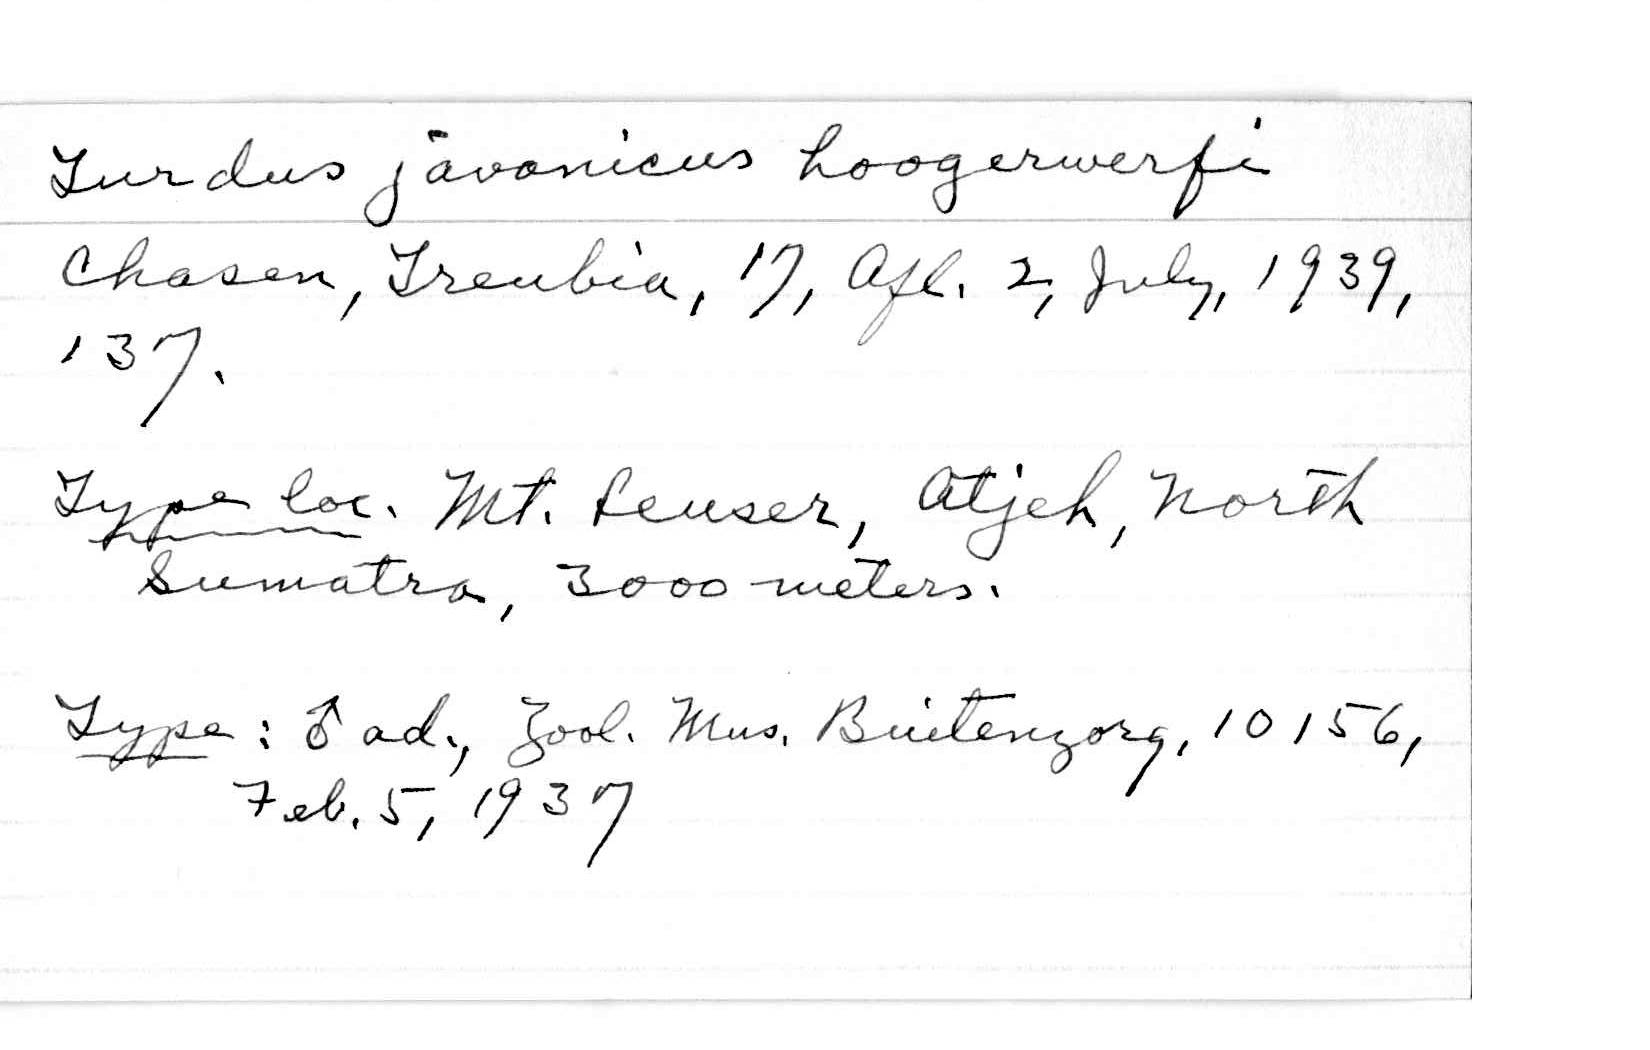 Turdus javanicus hoogerwerfi
Chasen, Treubia, 17, Afl. 2, July, 1939,
137.
Type loc. Mt. Leuser, Atjeh, North
Sumatra, 3000 meters.
Type: ♂ ad., Zool. Mus. Buitenzorg, 10156,
Feb. 5, 1937